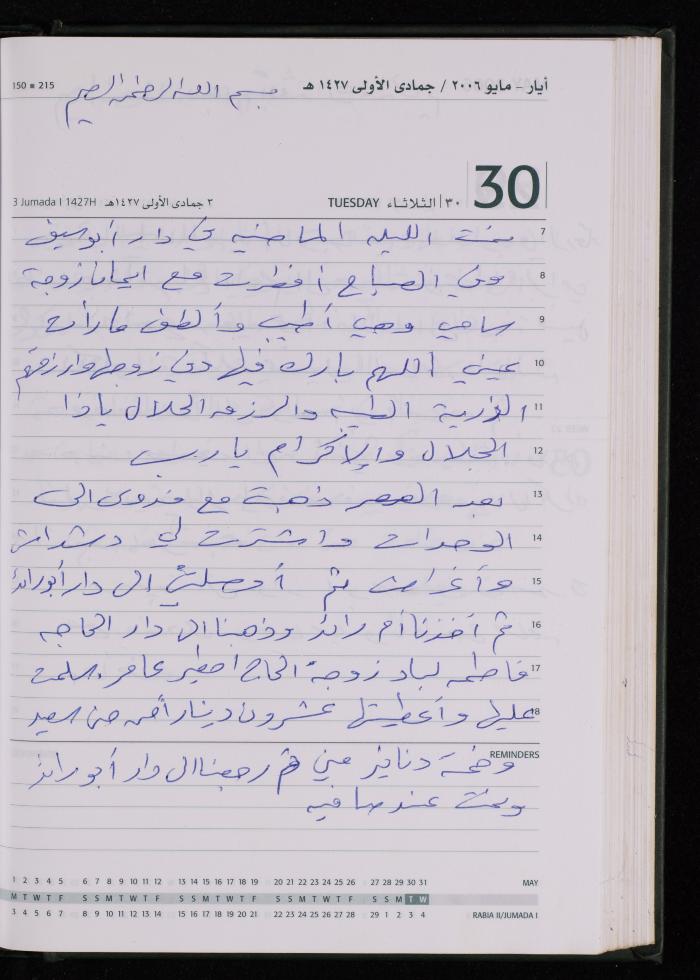 150 ■ 215
بسم الله الرحمن الرحيم
أيار - مايو ٢٠٠٦ / جمادى الأولى ١٤٢٧ هـ
30
3 Jumada I 1427H ٣ جمادى الأولى ١٤٢٧هـ
TUESDAY الثلاثاء ٣٠
7 نمت الليله الماضيه في دار أبو سيف
8 وفي الصباح أفطرت مع زوجة
9 سامي وهي أطيب وألطف ما رأت
10 عيني اللهم بارك فيها وفي زوجها وارزقهم
11 الذرية الطيبه والرزق الحلال ياذا
12 الجلال والإكرام يارب
13 بعد العصر ذهبت مع فدوى الى
14 الوحدات واشترت لي دشداش
15 وأغراض ثم أوصلتني الى دار أبو رائد
16 ثم أخذنا أم رائد وذهبنا الى دار الحاجه
17 فاطمه لباد زوجة الحاج عامر سلمت
18 عليها وأعطيتها عشرون دينار من السيد
REMINDERS
وخمسة دنانير مني ثم رجعنا الى دار أبو رائد
ونمت عند صافيه
1 2 3 4 5 6 7 8 9 10 11 12 13 14 15 16 17 18 19 20 21 22 23 24 25 26 27 28 29 30 31 MAY
M T W T F S S M T W T F S S M T W T F S S M T W T F S S M T W
3 4 5 6 7 8 9 10 11 12 13 14 15 16 17 18 19 20 21 22 23 24 25 26 27 28 29 1 2 3 4 RABIA II/JUMADA I